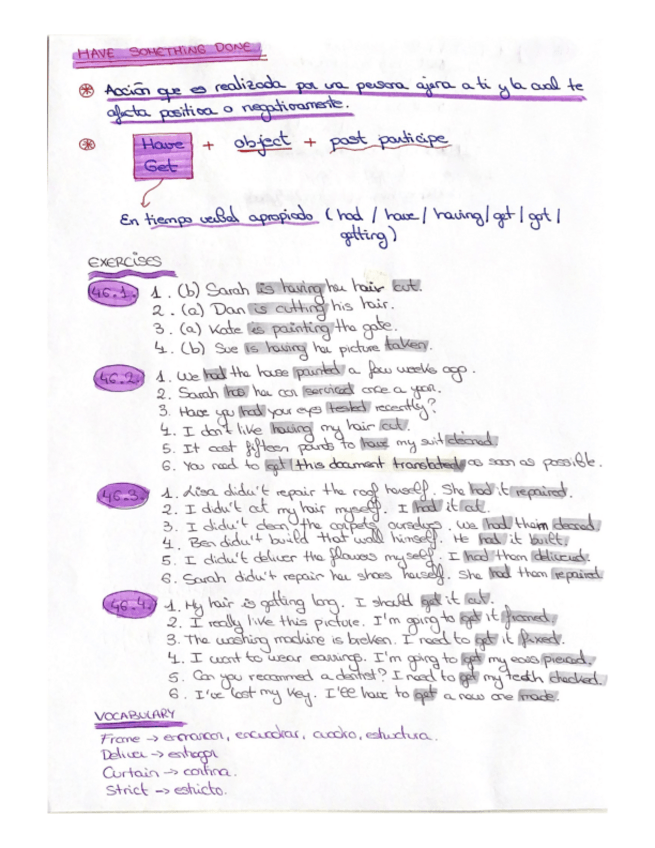 HAVE SOMETHING DONE
Acción que es realizada por una persona ajena a ti y la cual te
afecta positiva o negativamente.
Have + object + past participe
Get
En tiempo verbal apropiado (had / have / having / get / got /
getting)
EXERCISES
46.1. 1. (b) Sarah is having her hair cut.
2. (a) Dan is cutting his hair.
3. (a) Kate is painting the gate.
4. (b) Sue is having her picture taken.
46.2. 1. We had the house painted a few weeks ago.
2. Sarah has her car serviced once a year.
3. Have you had your eyes tested recently?
4. I don't like having my hair cut.
5. It cost fifteen pounds to have my suit cleaned.
6. You need to get this document translated as soon as possible.
46.3. 1. Lisa didn't repair the roof herself. She had it repaired.
2. I didn't cut my hair myself. I had it cut.
3. I didn't clean the carpets ourselves. We had them cleaned.
4. Ben didn't build that wall himself. He had it built.
5. I didn't deliver the flowers myself. I had them delivered.
6. Sarah didn't repair her shoes herself. She had them repaired
46.4. 1. My hair is getting long. I should get it cut.
2. I really like this picture. I'm going to get it framed.
3. The washing machine is broken. I need to get it fixed.
4. I want to wear earrings. I'm going to get my ears pierced.
5. Can you recommed a dentist? I need to get my teeth checked.
6. I've lost my key. I'll have to get a new one made.
VOCABULARY
Frame → enmarcar, encuadrar, cuadro, estructura.
Deliver → entregar
Curtain → cortina.
Strict → estricto.